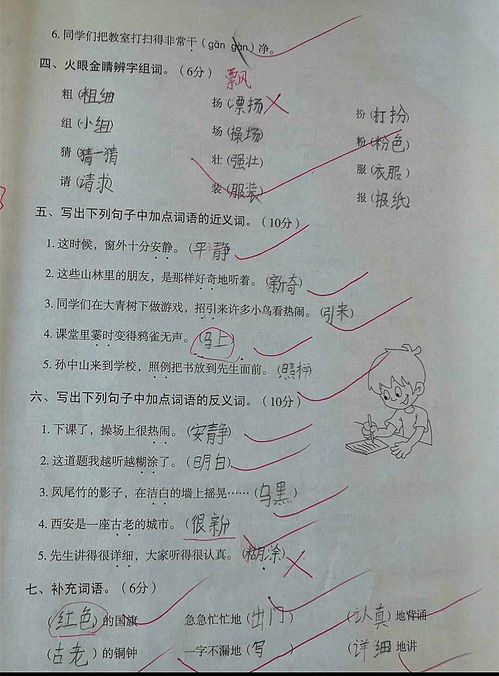 6. 同学们把教室打扫得非常干（gān gàn）净。
四、火眼金睛辨字组词。（6分） 飘
粗（粗细） 扬（漂扬） 扮（打扮）
组（小组） 场（操场） 粉（粉色）
猜（猜一猜） 壮（强壮） 服（衣服）
请（请求） 装（服装） 报（报纸）
五、写出下列句子中加点词语的近义词。（10分）
1. 这时候，窗外十分安静。（平静）
2. 这些山林里的朋友，是那样好奇地听着。（新奇）
3. 同学们在大青树下做游戏，招引来许多小鸟看热闹。（引来）
4. 课堂里霎时变得鸦雀无声。（马上）
5. 孙中山来到学校，照例把书放到先生面前。（照样）
六、写出下列句子中加点词语的反义词。（10分）
1. 下课了，操场上很热闹。（安静）
2. 这道题我越听越糊涂了。（明白）
3. 凤尾竹的影子，在洁白的墙上摇晃……（乌黑）
4. 西安是一座古老的城市。（很新）
5. 先生讲得很详细，大家听得很认真。（糊涂）
七、补充词语。（6分）
（红色）的国旗 急急忙忙地（出门） （认真）地背诵
（古老）的铜钟 一字不漏地（写） （详细）地讲